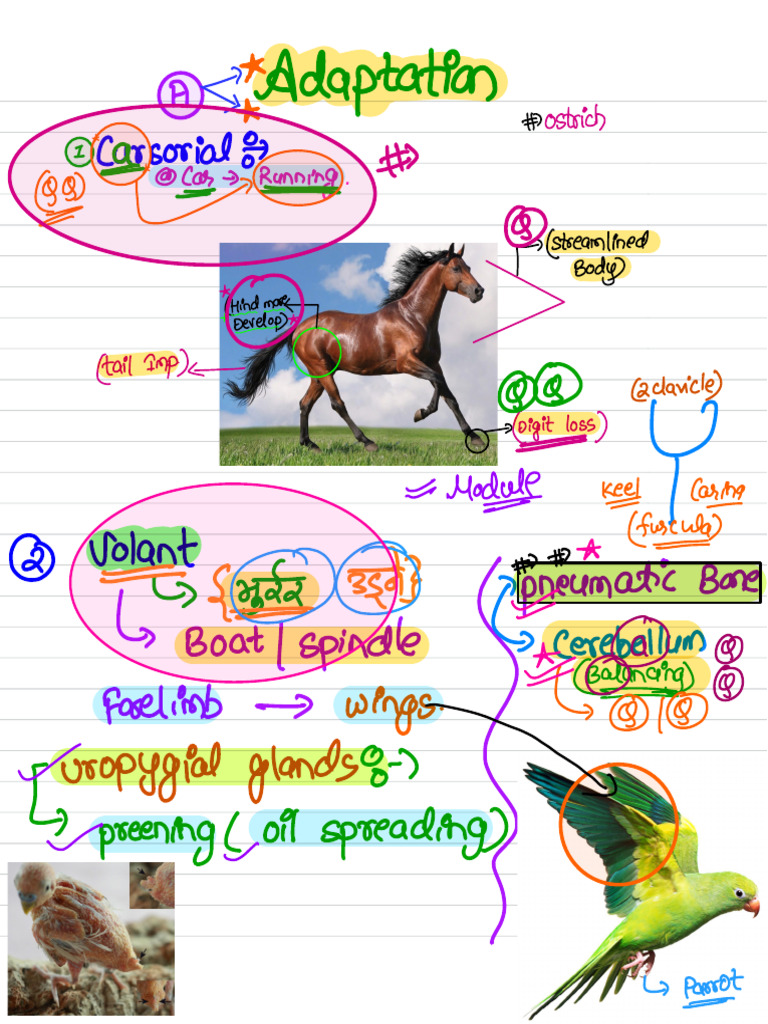 A Adaptation
# ostrich
① Carsorial :→
@ Car → Running.
Q Q
Q → (streamlined
Body)
(Hind more
Develop)
(tail Imp)
Q Q
(Digit loss)
(2 clavicle)
Module
keel Carina
(furcula)
② Volant
{ उड़ने }
Boat | spindle
Pneumatic Bone
Cerebellum Q
(Balancing) Q
Q | Q
forelimb → wings.
uropygial glands :→
preening (oil spreading)
Parrot